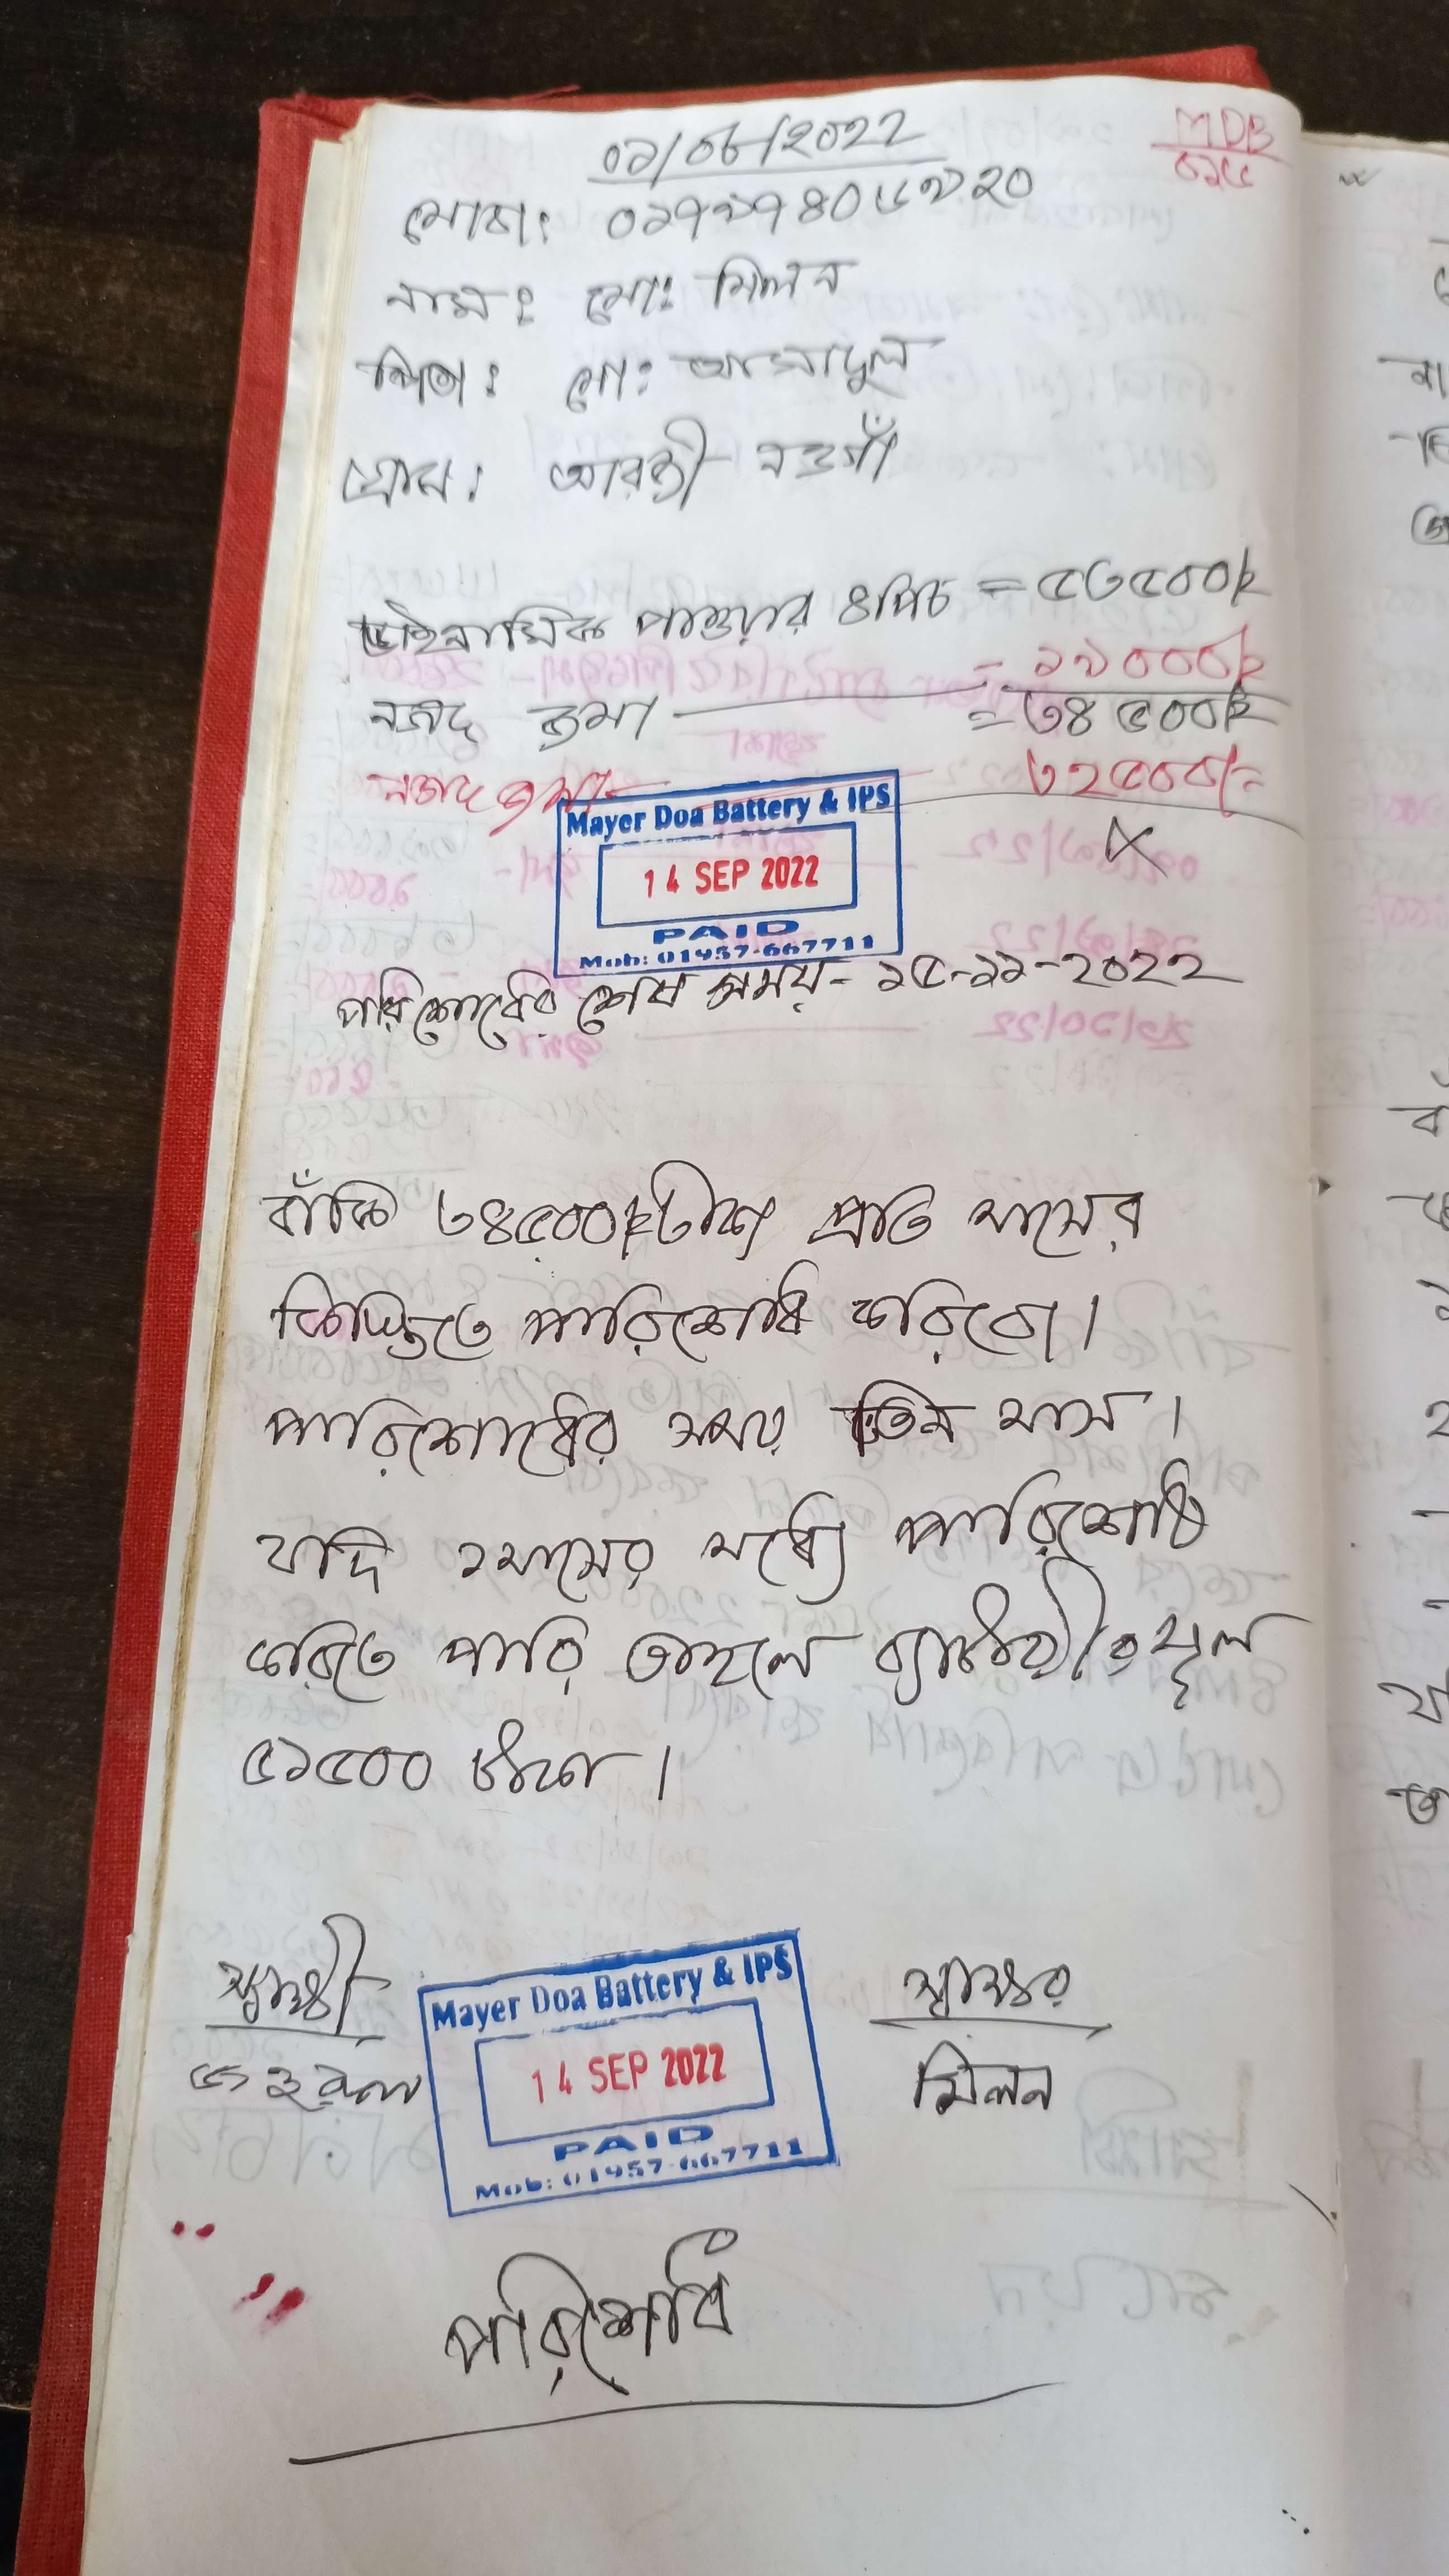 ০১/০৮/২০২২
MDB
০১৫
মোবা: ০১৭৯৭৪০৬৯২০
নাম: মো: মিলন
পিতা: মো: আসাদুল
গ্রাম: আরাজী নওগাঁ
ডাইনামিক পাওয়ার ৪পিচ = ৫৩৫০০/=
= ১৯০০০/=
নগদ জমা = ৩৪৫০০/=
নগদ জমা- ৩২৫০০/=
Mayer Doa Battery & IPS
14 SEP 2022
PAID
Mob: 01957-667711
পরিশোধের শেষ সময়- ১৫-১১-২০২২
বাঁকি ৩৪৫০০/=টাকা প্রতি মাসের
কিস্তিতে পারিশোধ করিবো।
পারিশোধের সময় তিন মাস।
যদি ২মাসের মধ্যে পারিশোধ
করিতে পারি তাহলে ব্যাটারীর মূল
৫১৫০০ টাকা।
স্বাক্ষী
স্বাক্ষর
জহুরুল
মিলন
Mayer Doa Battery & IPS
14 SEP 2022
PAID
Mob: 01957-667711
পরিশোধ